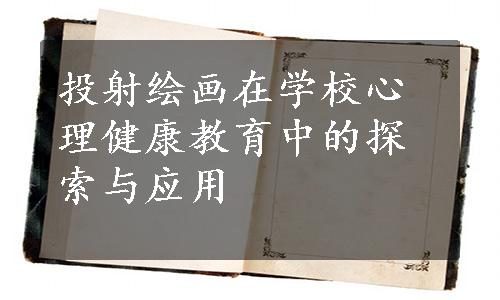 投射绘画在学校心
理健康教育中的探
索与应用